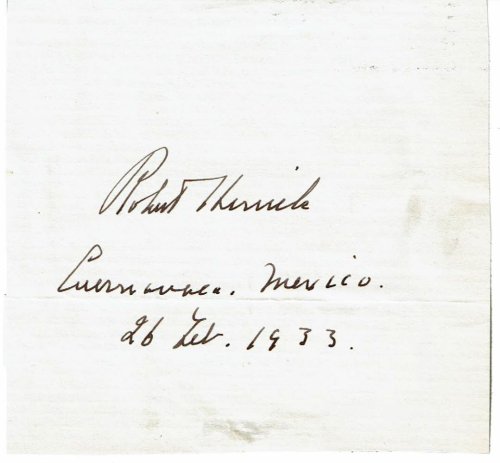 Robert Herrick
Cuernavaca. Mexico.
26 Feb. 1933.